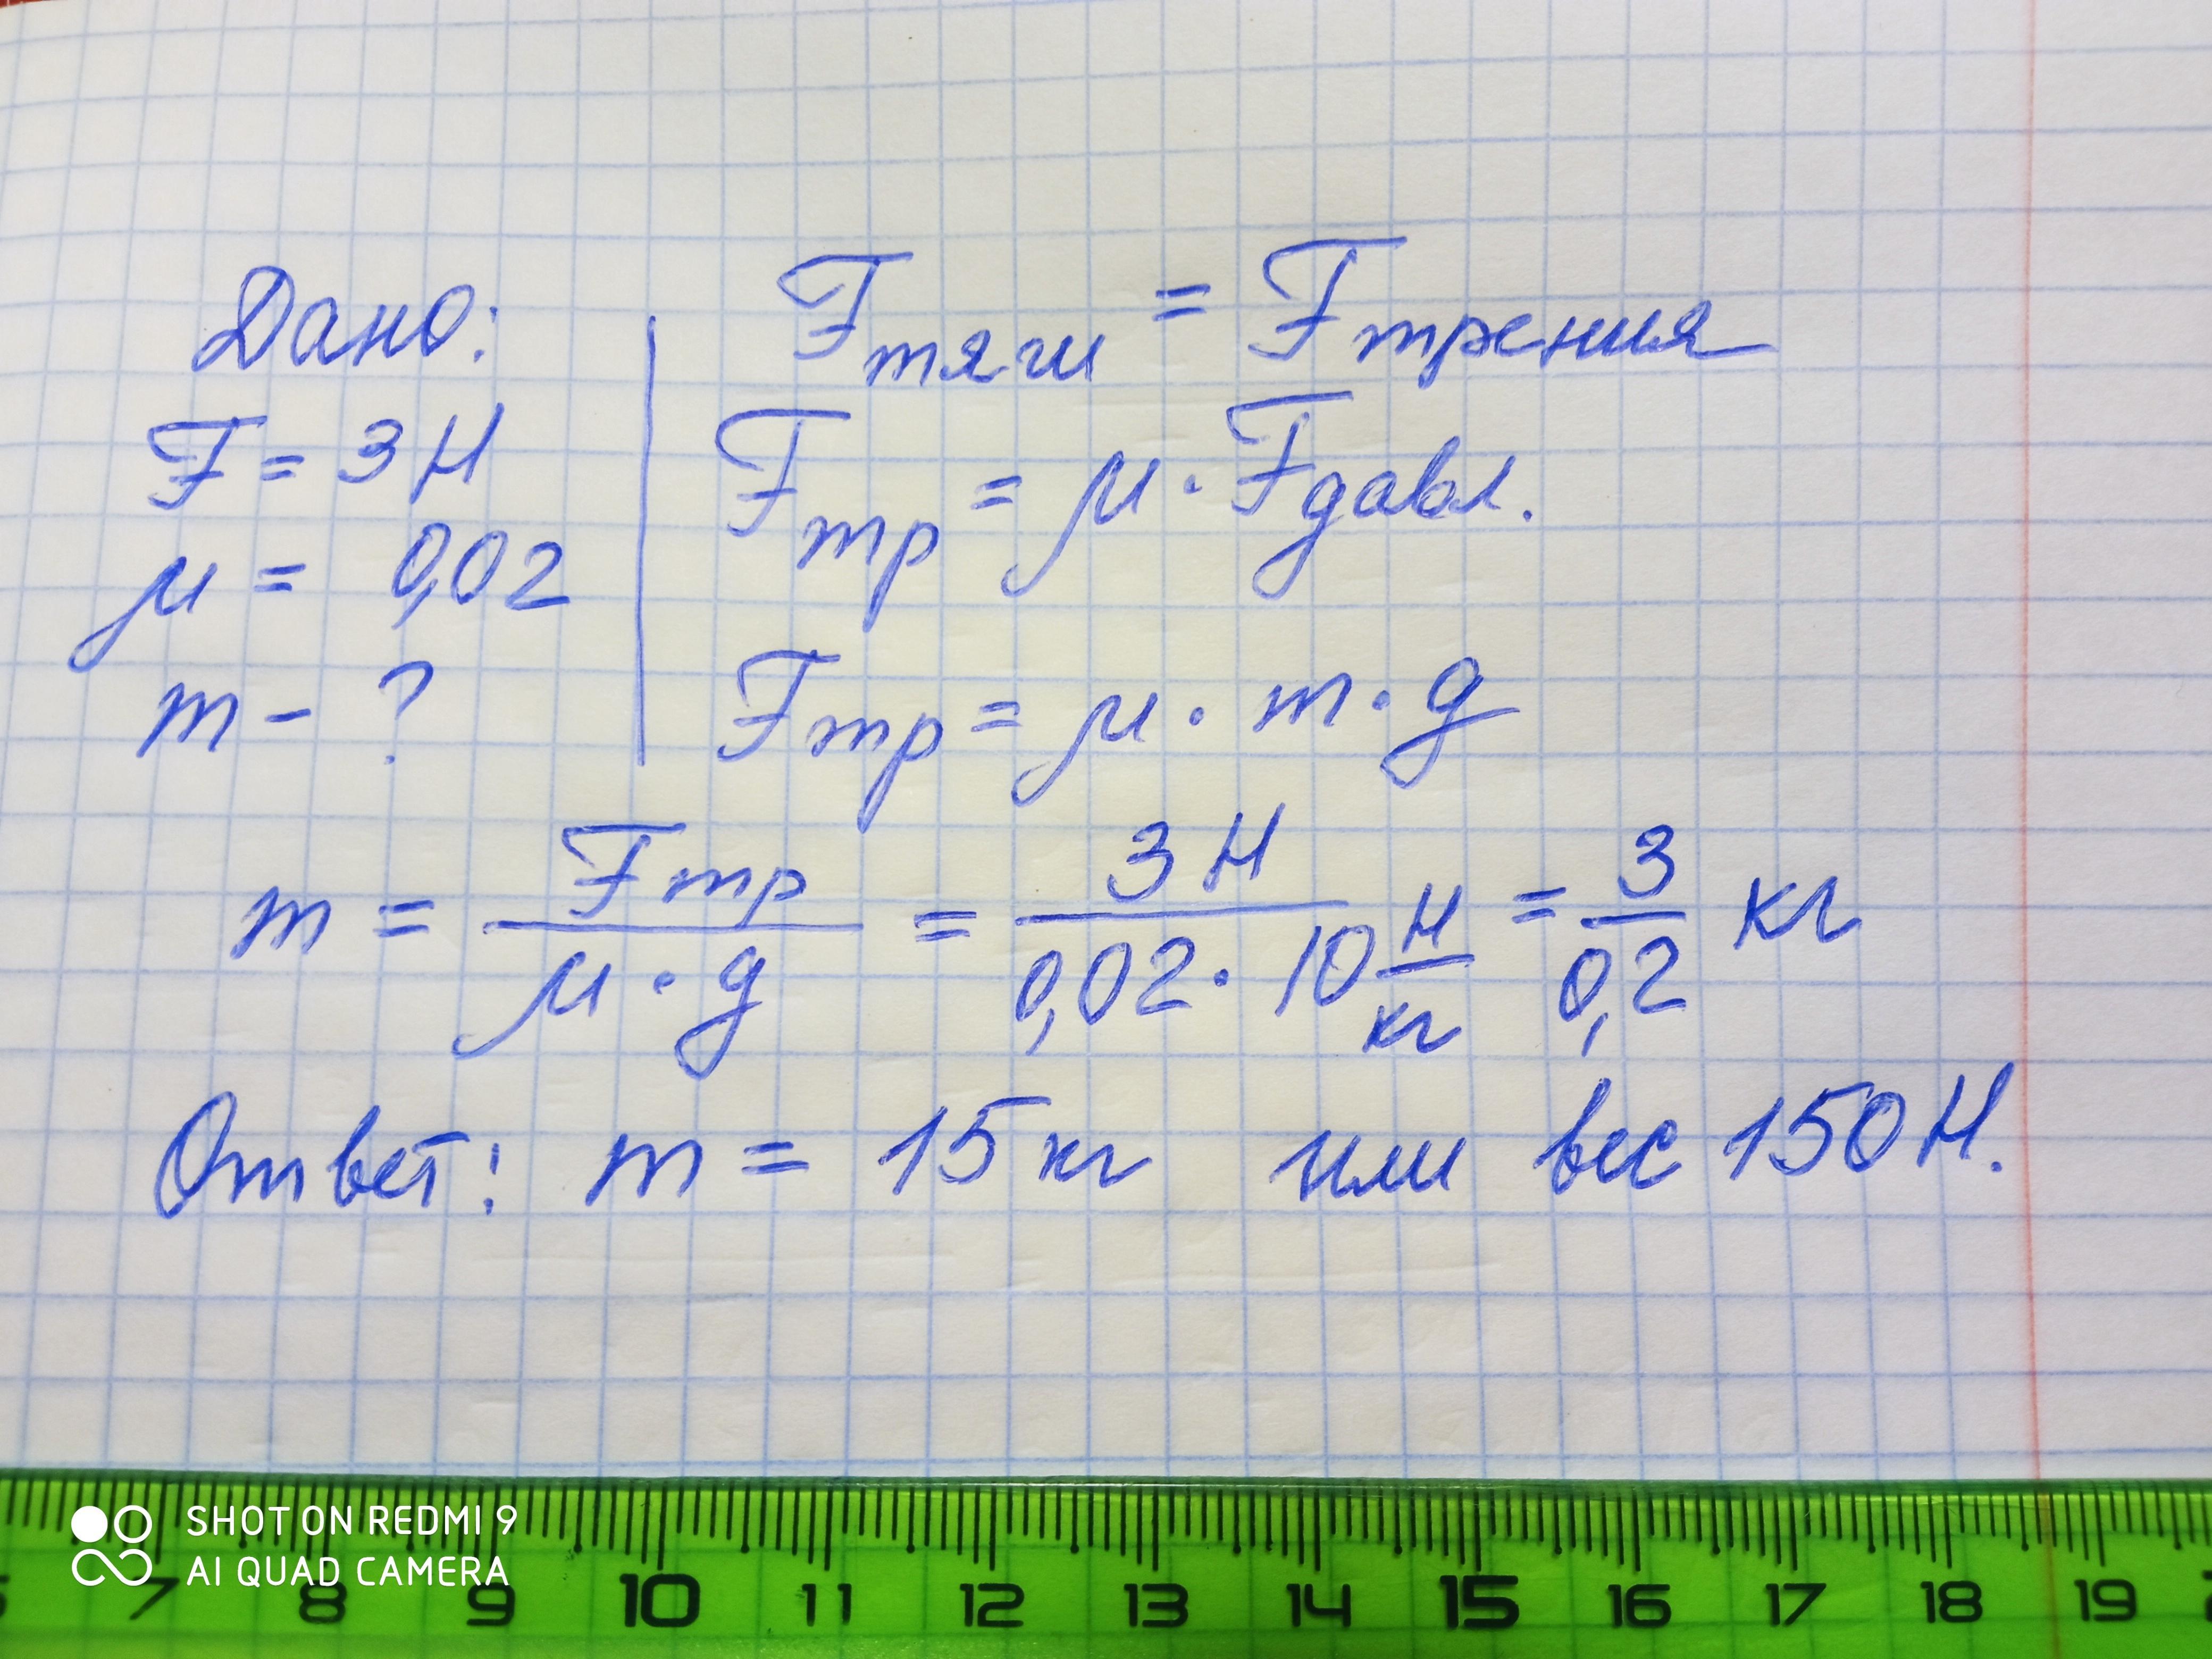 Дано:
F = 3 Н
μ = 0,02
m - ?
Fтяги = Fтрения
Fтр = μ · Fдавл.
Fтр = μ · m · g
m = Fтр / μ · g = 3 Н / 0,02 · 10 Н/кг = 3/0,2 кг
Ответ: m = 15 кг или вес 150 Н.
SHOT ON REDMI 9
AI QUAD CAMERA
7 8 9 10 11 12 13 14 15 16 17 18 19